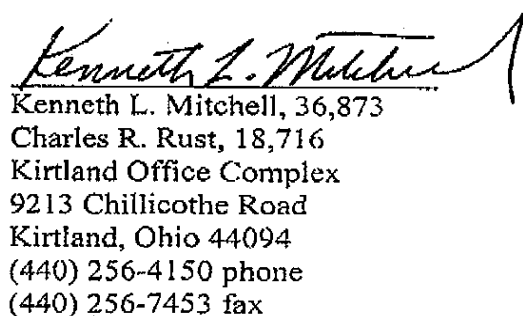 Kenneth L. Mitchell
Kenneth L. Mitchell, 36,873
Charles R. Rust, 18,716
Kirtland Office Complex
9213 Chillicothe Road
Kirtland, Ohio 44094
(440) 256-4150 phone
(440) 256-7453 fax